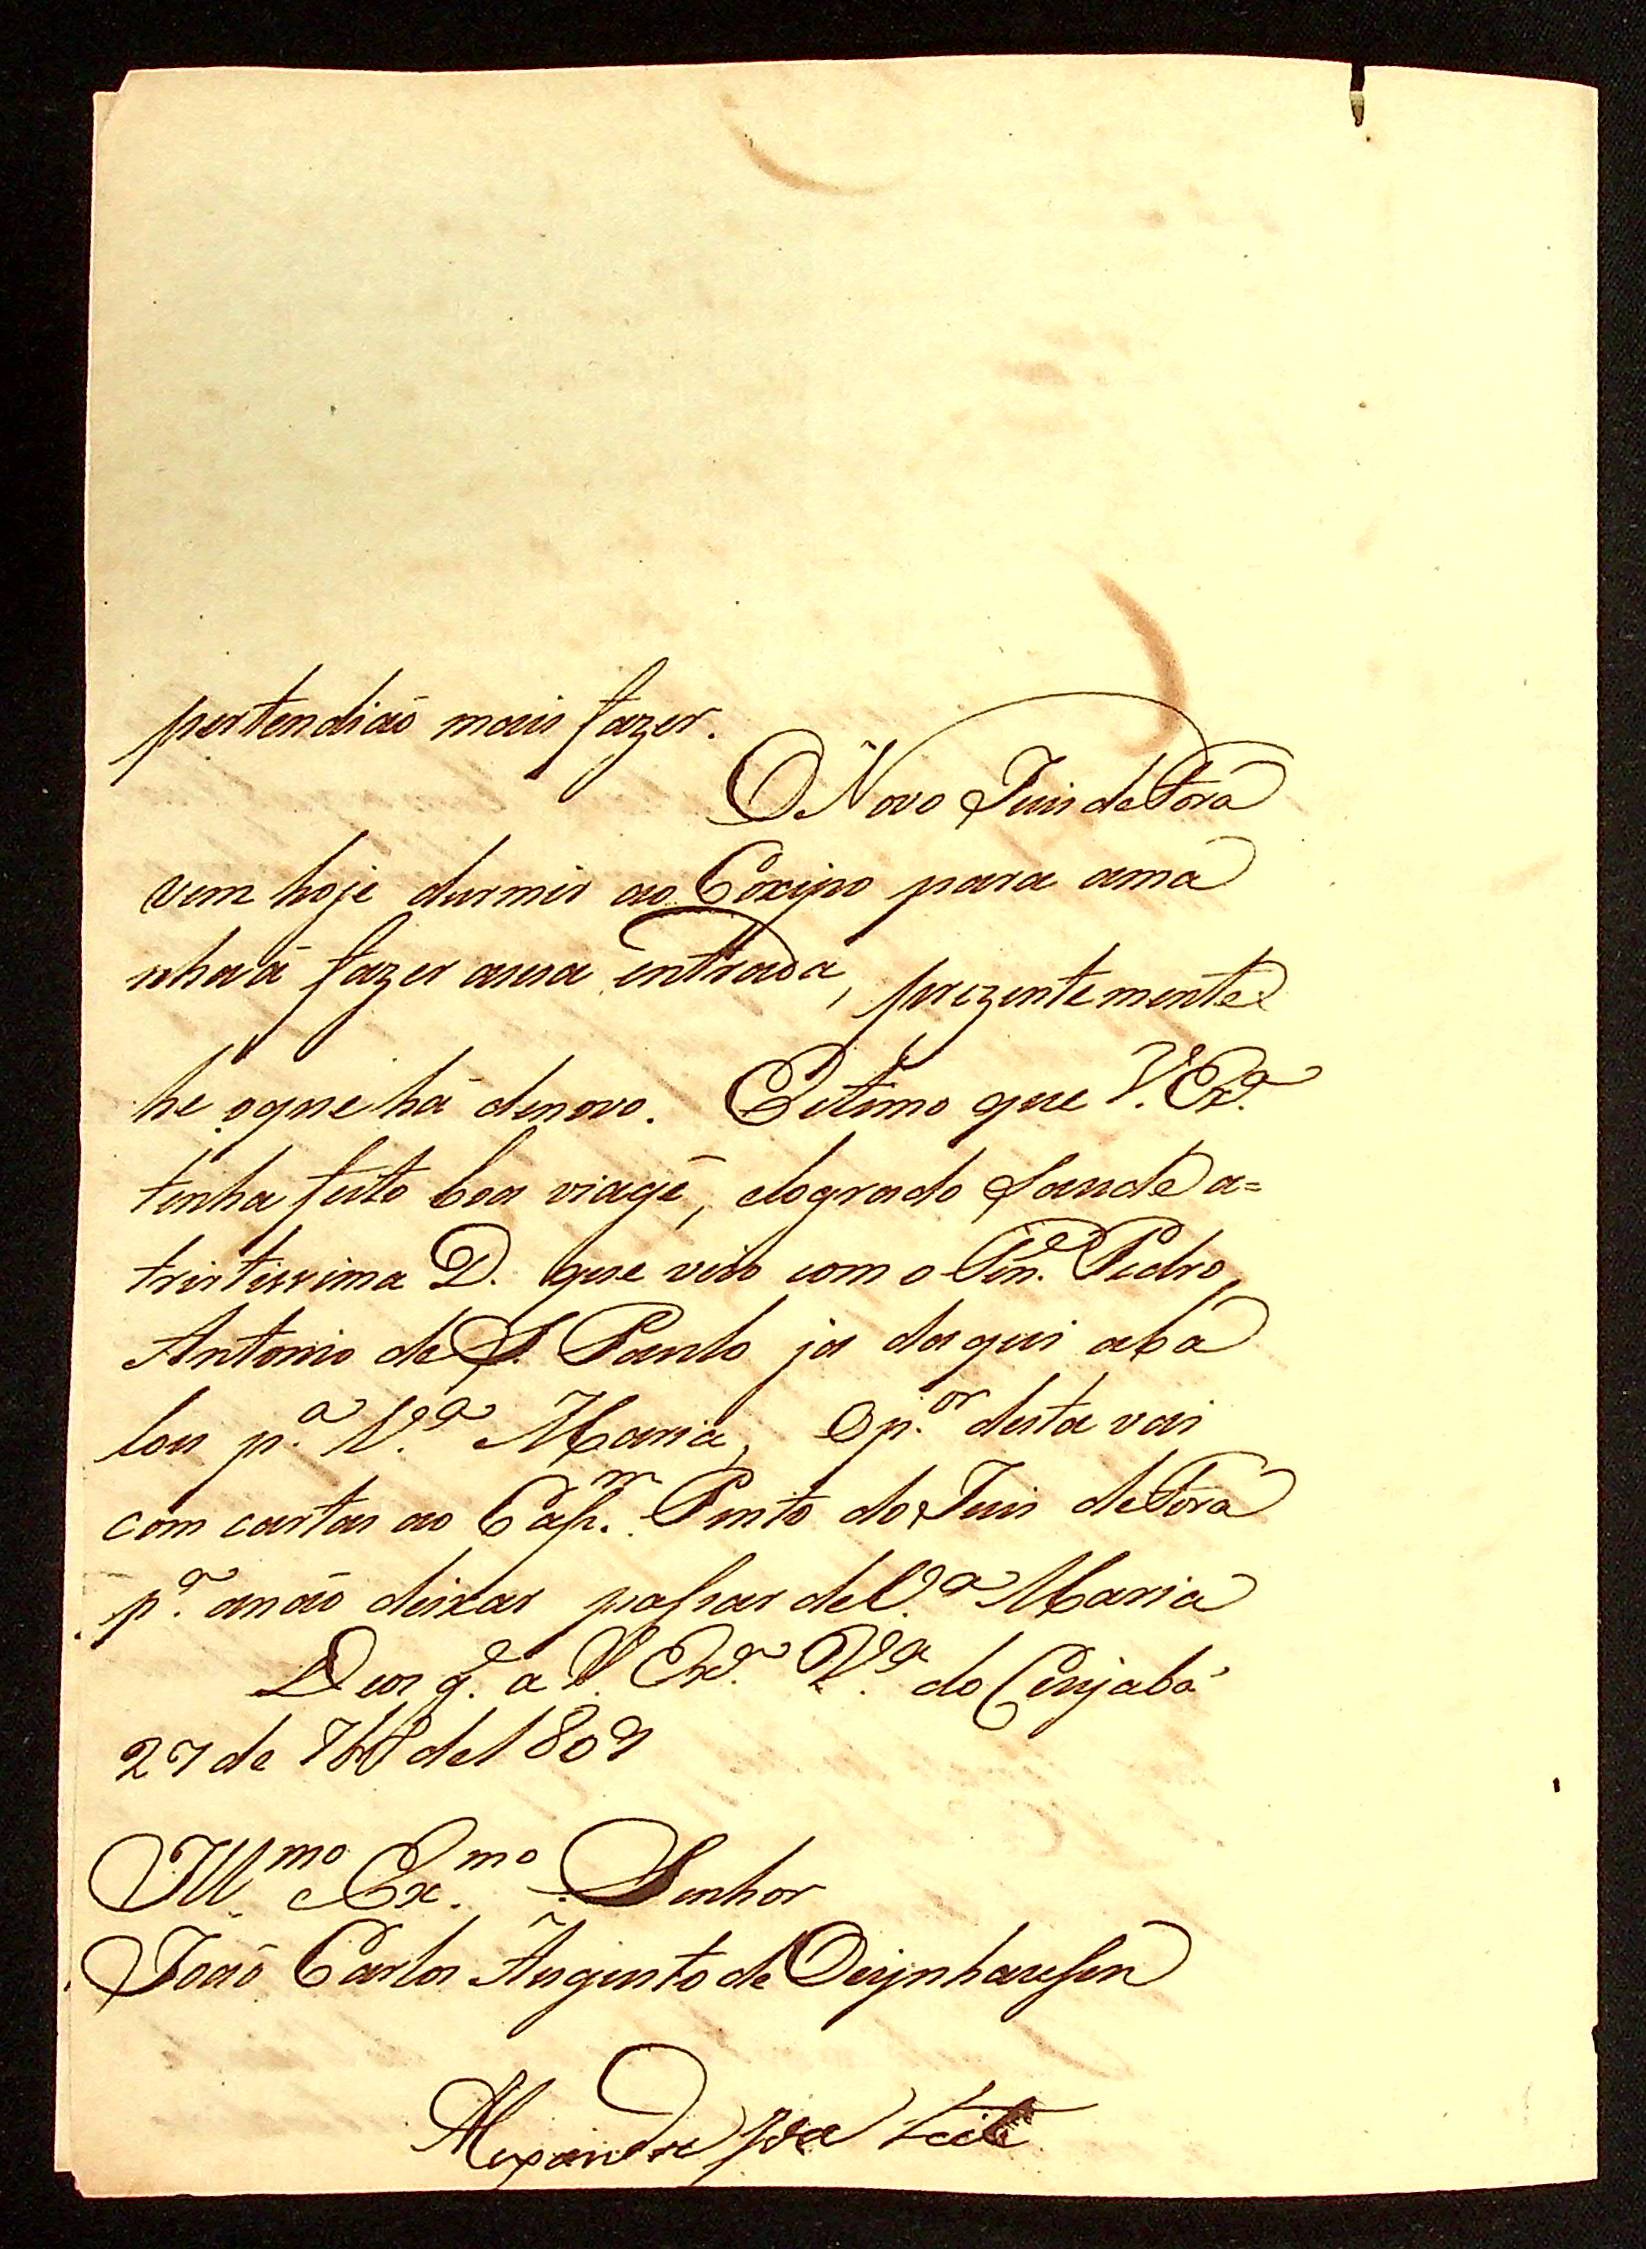 pertendiaõ mais fazer.
O Novo Juis de Fora
vem hoje durmir ao Coxipo para ama
nhaã fazer asua entrada, prezentemente
he oque há denovo. Estimo que V. Exª.
tenha feito boa viagē, elogrado saude a=
tristissima D. que veio com o Ten.e Pedro
Antonio de S. Paulo ja daqui aba
lou p.ª V.ª Maria, O p.or desta vai
com cartas ao Cap.m Pinto do Juis de Fora
p.ª anaõ deixar passar de V.ª Maria
Deos g.e a V. Exª. V.ª do Cuyabá
27 de 7br.o de 1809
Ill.mo Ex.mo Senhor
Joaõ Carlos Augusto de Oeynhausen
Alexandre Joze Leite